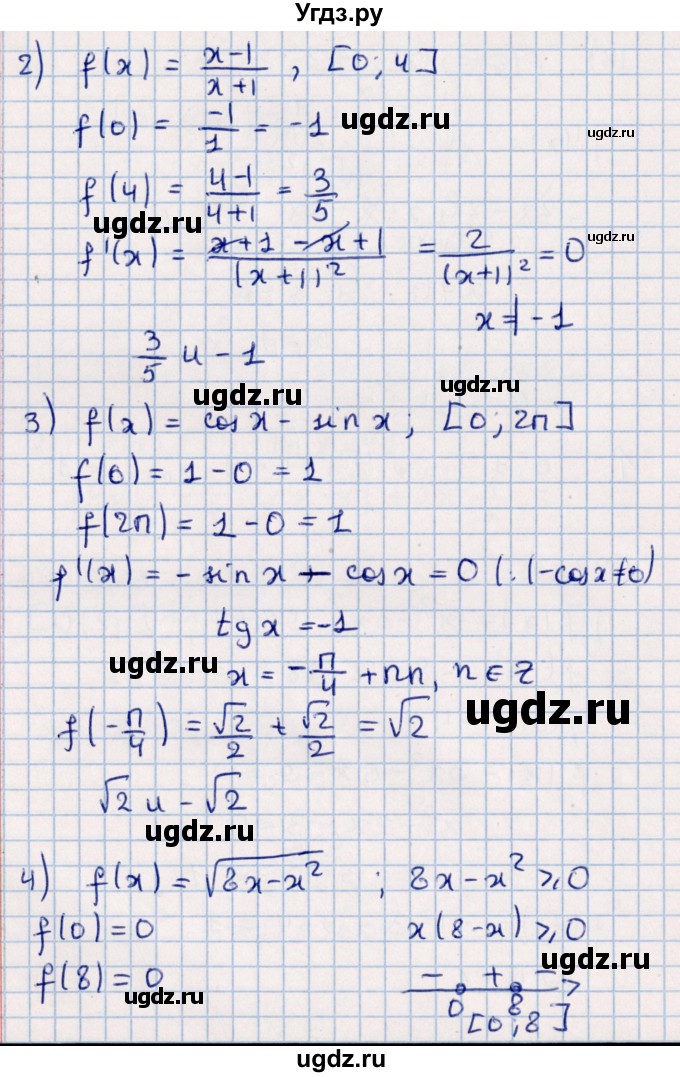 Угдз.ру
2) f(x) = \frac{x-1}{x+1} , [0; 4]
f(0) = \frac{-1}{1} = -1 ugdz.ru ugdz.ru
f(4) = \frac{4-1}{4+1} = \frac{3}{5}
ugdz.ru
f'(x) = \frac{x+1-x+1}{(x+1)^2} = \frac{2}{(x+1)^2} = 0 ugdz.ru
x ≠ -1
\frac{3}{5} и -1
ugdz.ru ugdz.ru
3) f(x) = cos x - sin x ; [0; 2π]
f(0) = 1 - 0 = 1
f(2π) = 1 - 0 = 1
f'(x) = - sin x - cos x = 0 (: (-cos x ≠ 0)
tg x = -1
ugdz.ru
x = -\frac{π}{4} + πn, n ∈ Z
ugdz.ru
f(-\frac{π}{4}) = \frac{√2}{2} + \frac{√2}{2} = √2
√2 и -√2
ugdz.ru
4) f(x) = √(8x-x^2) ; 8x - x^2 ⩾ 0
f(0) = 0 x(8-x) ⩾ 0
f(8) = 0 - + -
ugdz.ru ugdz.ru
0 8
[0; 8]
ugdz.ru